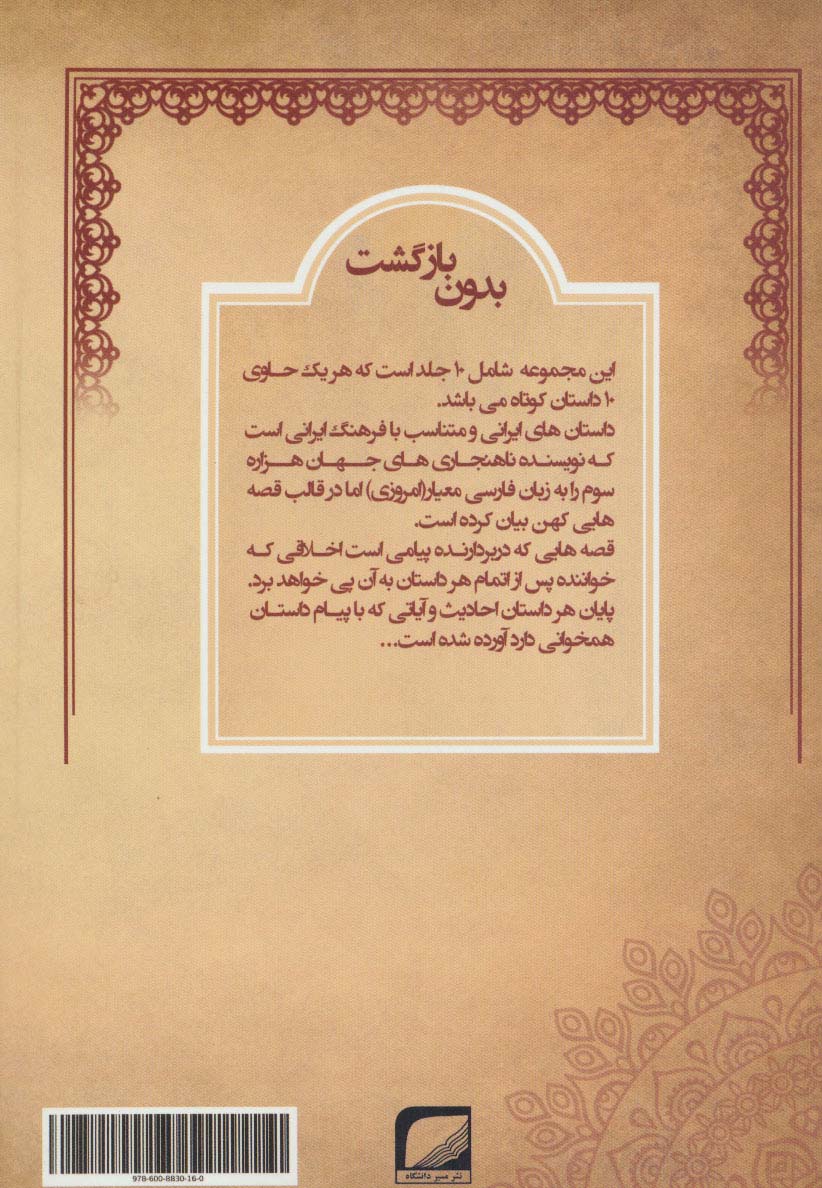 بدون
بازگشت
این مجموعه شامل ۱۰ جلد است که هر یک حاوی
۱۰ داستان کوتاه می باشد.
داستان های ایرانی و متناسب با فرهنگ ایرانی است
که نویسنده ناهنجاری های جهان هزاره
سوم را به زبان فارسی معیار(امروزی) اما در قالب قصه
هایی کهن بیان کرده است.
قصه هایی که دربردارنده پیامی است اخلاقی که
خواننده پس از اتمام هر داستان به آن پی خواهد برد.
پایان هر داستان احادیث و آیاتی که با پیام داستان
همخوانی دارد آورده شده است...
نشر مسیر دانشگاه
978-600-8830-16-0